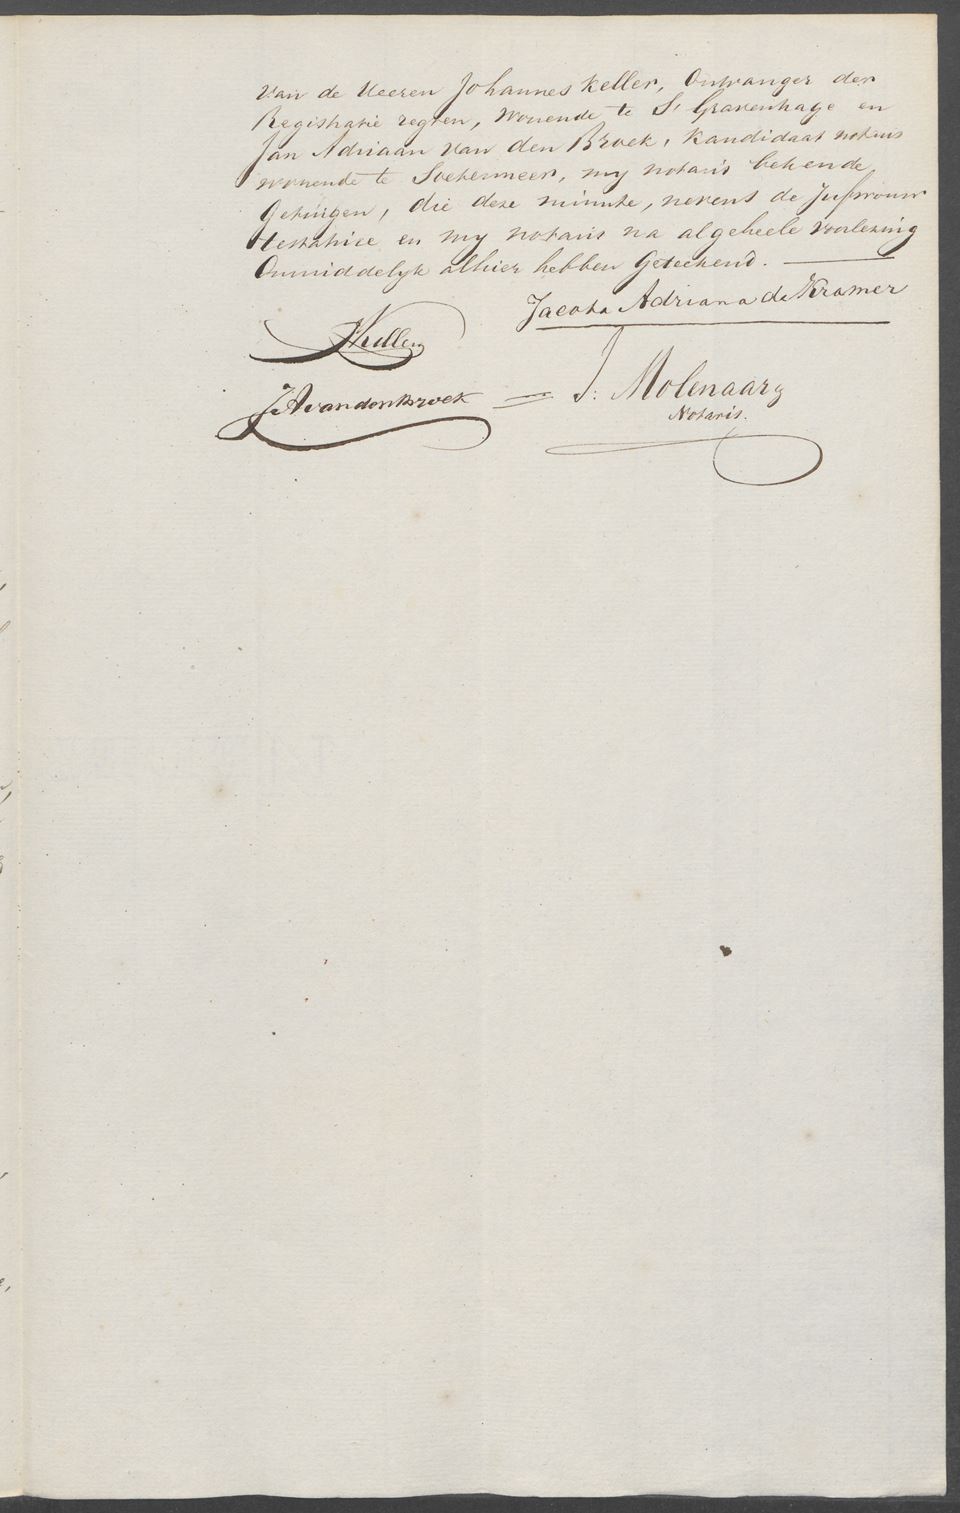 van de Heeren Johannes Keller, Ontvanger der
Registratie regten, wonende te S' Gravenhage en
Jan Adriaan van den Broek, Kandidaat notaris
wonende te Soetermeer, my notaris bekende
Getuigen, die deze minute, nevens de Jufvrouw
testatrice en my notaris na algeheele voorlezing
Onmiddelyk alhier hebben Geteekend.
Jacoba Adriana de Kramer
JKeller
J: Molenaar
JAvandenBroek
Notaris.